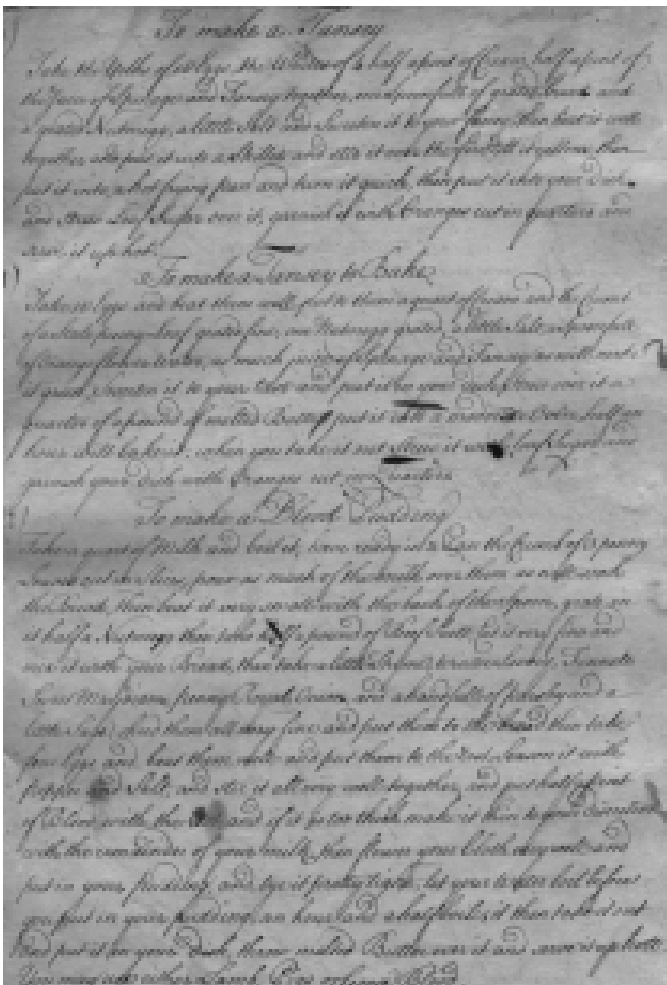 To make a Tansey
Take the Yolks of 10 Eggs, the Whites of 4 half a pint of Cream, half a pint of
the Juice of Spinage and Tansey together, one spoonfull of grated bread and
a grated Nutmegg, a little Salt and Sweeten it to your fancy then beat it well
together, and put it into a Skillet and stir it over the fire till it then
put it into a hot frying pan and turn it quick, then put it into your Dish
and Strew Loaf Sugar over it, garnish it with Oranges cut in quarters and
serve it up hot
To make a Tansey to Bake
Take 10 Eggs and beat them well, put to them a quart of Cream and the Crumb
of a Stale penny Loaf grated fine, one Nutmegg grated, a little Salt, a spoonfull
of Orange flower water, as much juice of Spinage and Tansey as will make
it green, Sweeten it to your and put it in your dish, over it a
quarter of a pound of melted Butter put it into a Oven, half an
hour will bake it, when you take it out Strew it with Loaf Sugar and
garnish your dish with Oranges cut in quarters
To make a Blood Pudding
Take a quart of Milk and boil it, have ready in a the Crumb of 2 penny
cut in Slices, pour as much of the milk over them as will soak
the Bread, then beat it very small with the back of the Spoon, grate in
it half a Nutmegg then take half a pound of Beef Suet, cut it very fine and
mix it with your Bread, then take a little
Sweet Marjoram, penny Royal, Onion, and a handfull of parsley and a
little Sage, shred them all very fine and put them to the bread then take
four Eggs and beat them well and put them to the rest, Season it with
pepper and Salt, and stir it all very well together, and put half a pint
of Blood with the and if it be too thick make it thin to your
with the remainder of your milk, then flower your Cloth very well and
put in your pudding, and tye it pretty tight, let your water boil before
you put in your pudding, an hour and a half boils it then take it out
and put it in your Dish, throw melted Butter over it and serve it up hott
You may use either Lamb, Pigs or Blood